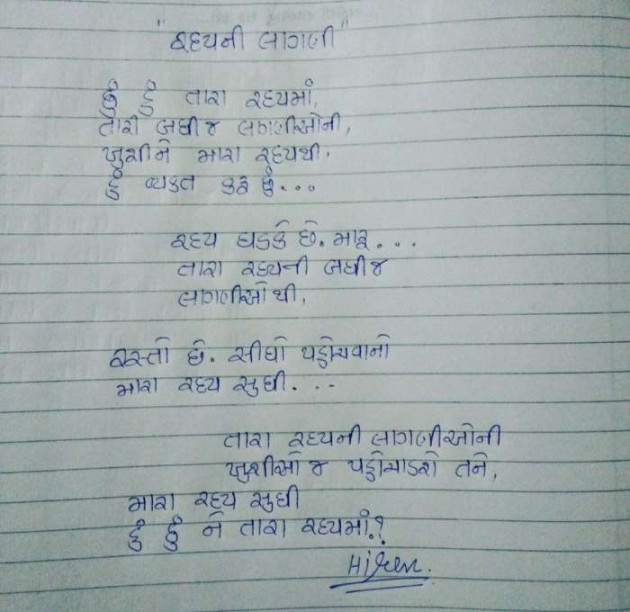 "રદયની લાગણી"
છું હું તારા રદયમાં,
તારી બધીજ લગણીઓની,
ખુશીને મારા રદયથી.
હું વ્યકત કરૂ છું...
રદય ધડકે છે. મારૂ...
તારા રદયની બધીજ
લાગણીઓથી,
રસ્તો છે. સીધો પહોચવાનો
મારા રદય સુધી...
તારા રદયની લાગણીઓની
ખુશીઓ જ પહોચાડશે તને,
મારા રદય સુધી
છું હું ને તારા રદયમાં.?
Hiren.